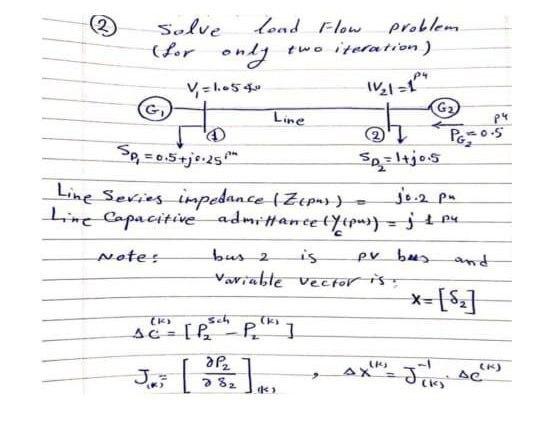 ② Solve load Flow problem
(for only two iteration)
V₁ = 1.05∠0 |V₂| = 1 pu
G₁ Line G₂
① ② P_G₂ = 0.5 pu
S_D₁ = 0.5+j0.25 pu S_D₂ = 1+j0.5
Line Series impedance (Z(pu)) = j0.2 pu
Line Capacitive admittance (Y_c(pu)) = j 1 pu
Note: bus 2 is PV bus and
Variable vector is:
x = [δ₂]
ΔC^(K) = [P₂^Sch - P₂^(K)]
J_(K) = [∂P₂/∂δ₂]_(K) , ΔX^(K) = J_(K)^-1 . ΔC^(K)